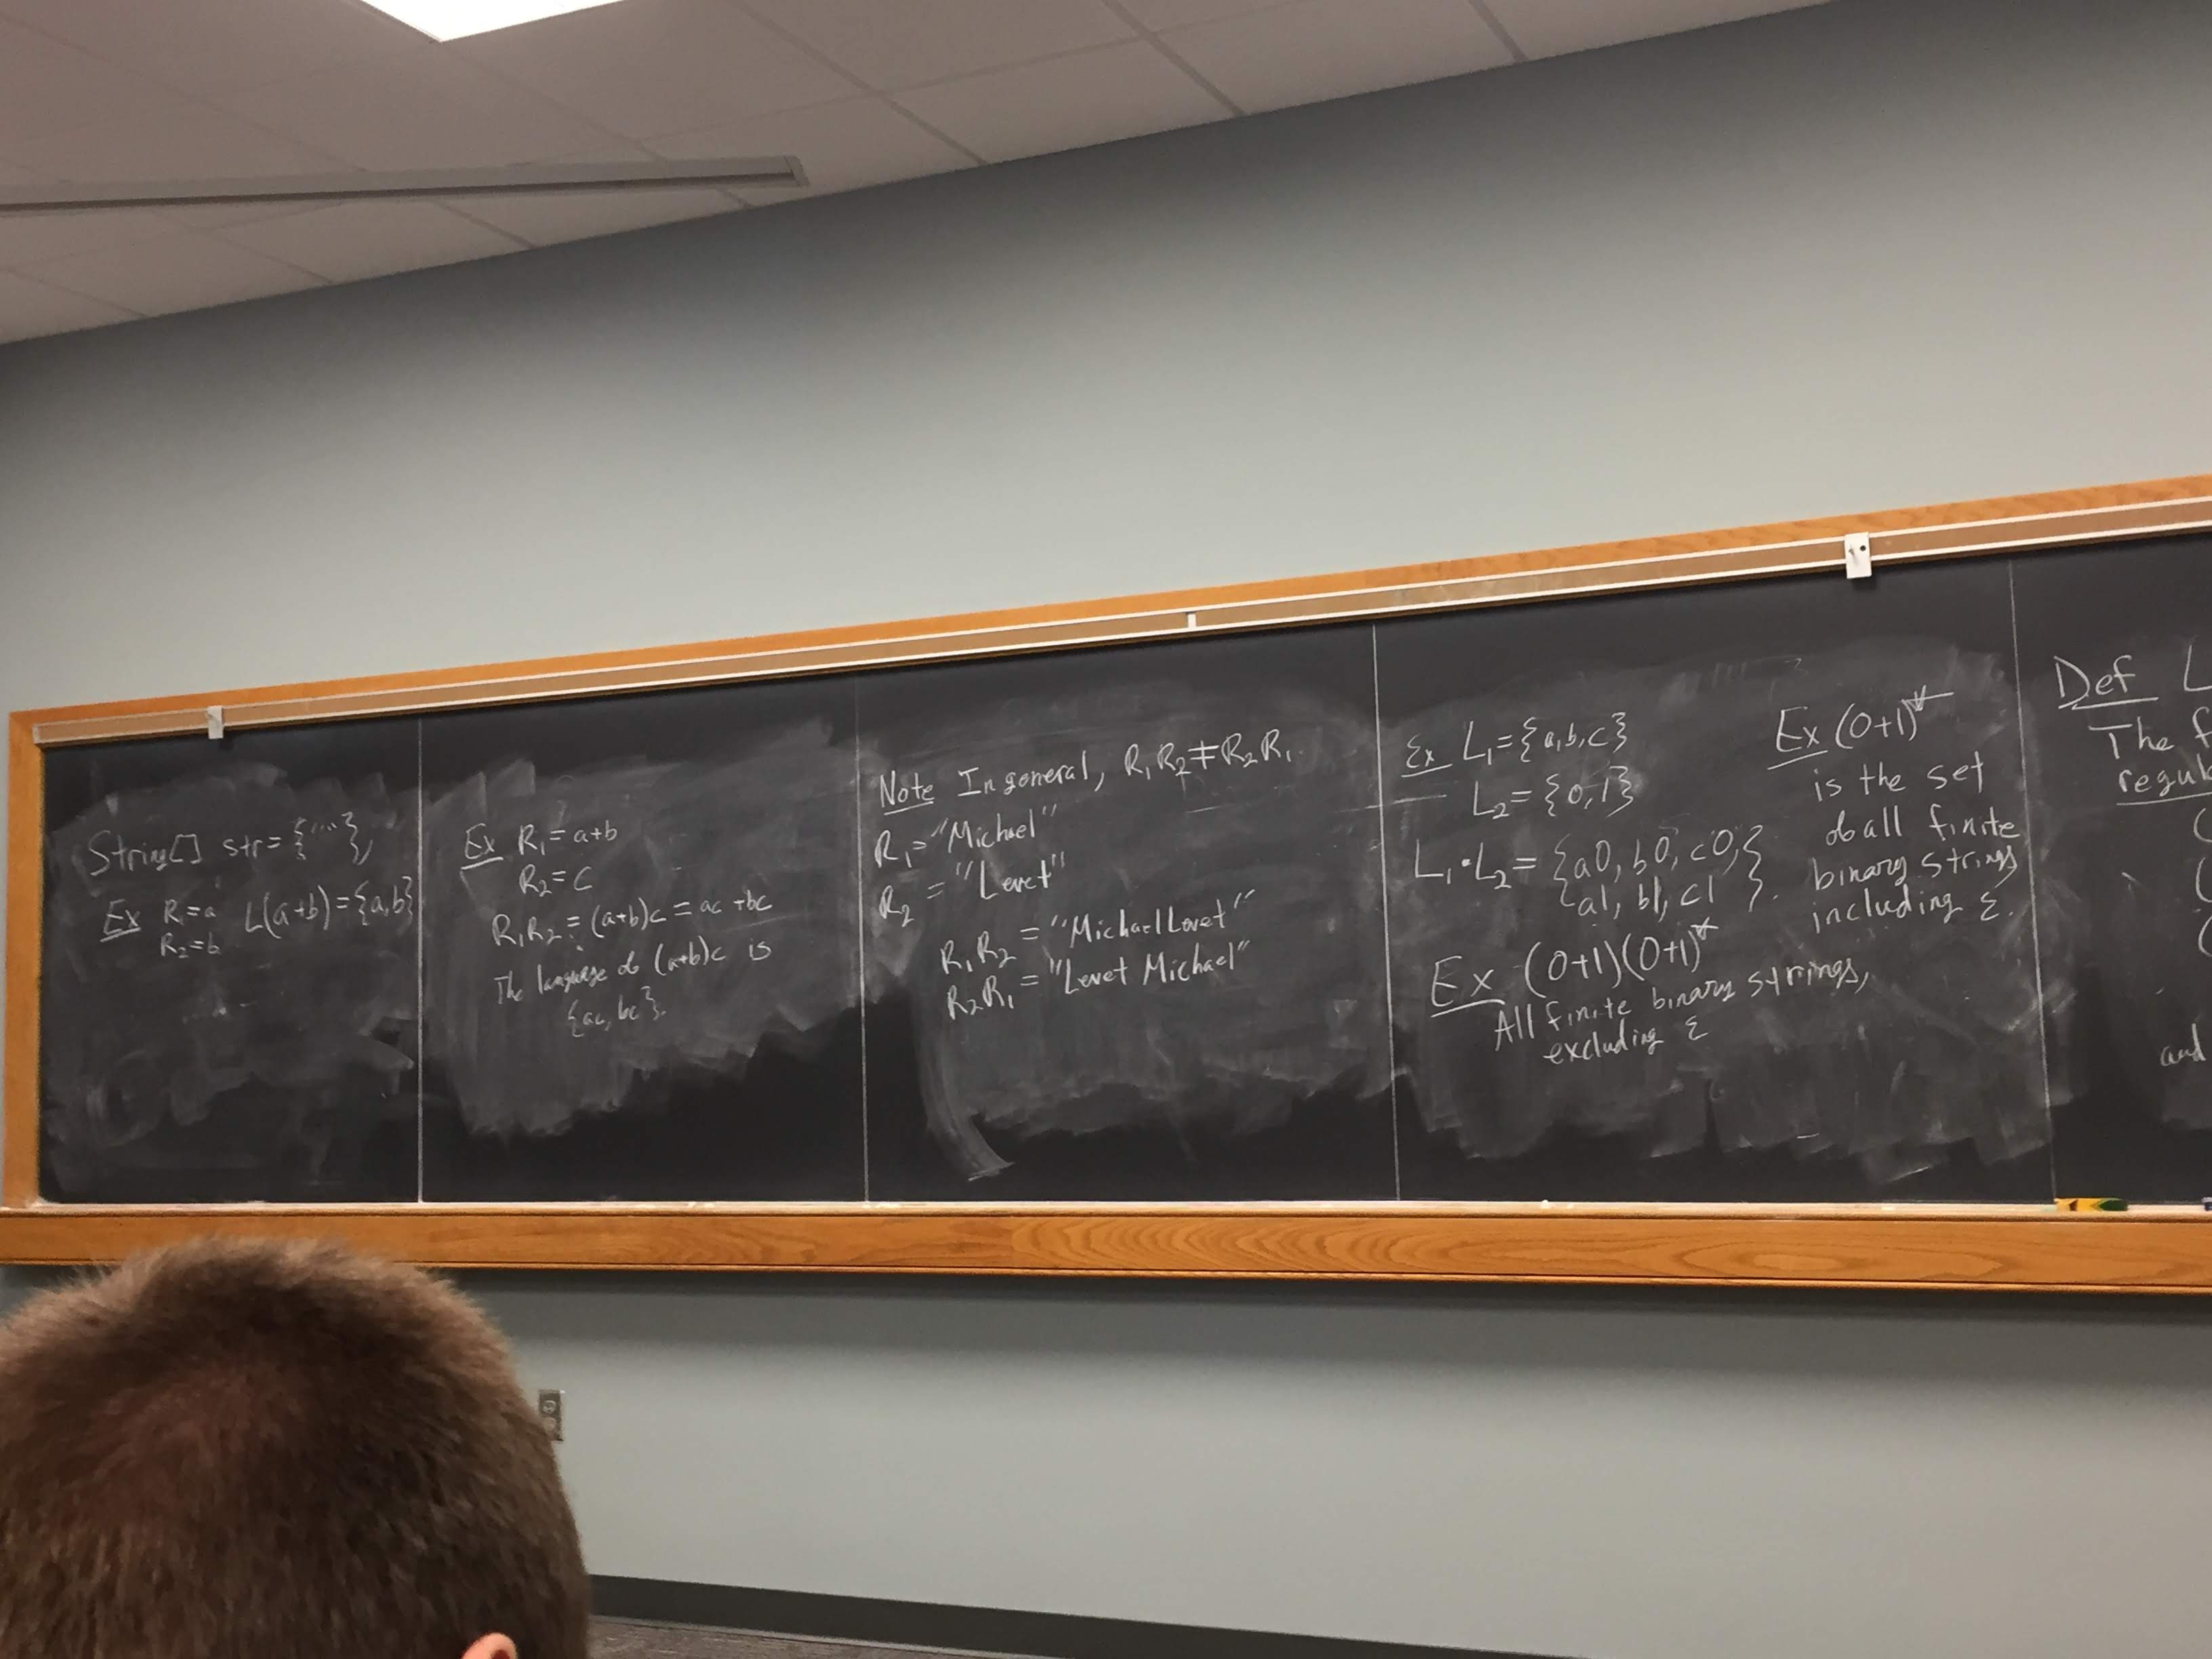 String[] str = {"..."},
Ex R₁=a L(a+b)={a,b}
R₂=b
Ex R₁=a+b
R₂=c
R₁R₂=(a+b)c=ac+bc
The language of (a+b)c is
{ac, bc}.
Note In general, R₁R₂≠R₂R₁.
R₁="Michael"
R₂="Levet"
R₁R₂="MichaelLevet"
R₂R₁="Levet Michael"
Ex L₁={a,b,c}
L₂={0,1}
L₁·L₂={a0, b0, c0,
a1, b1, c1}.
Ex (0+1)(0+1)*
All finite binary strings,
excluding ε
Ex (0+1)*
is the set
of all finite
binary strings
including ε.
Def L
The
and